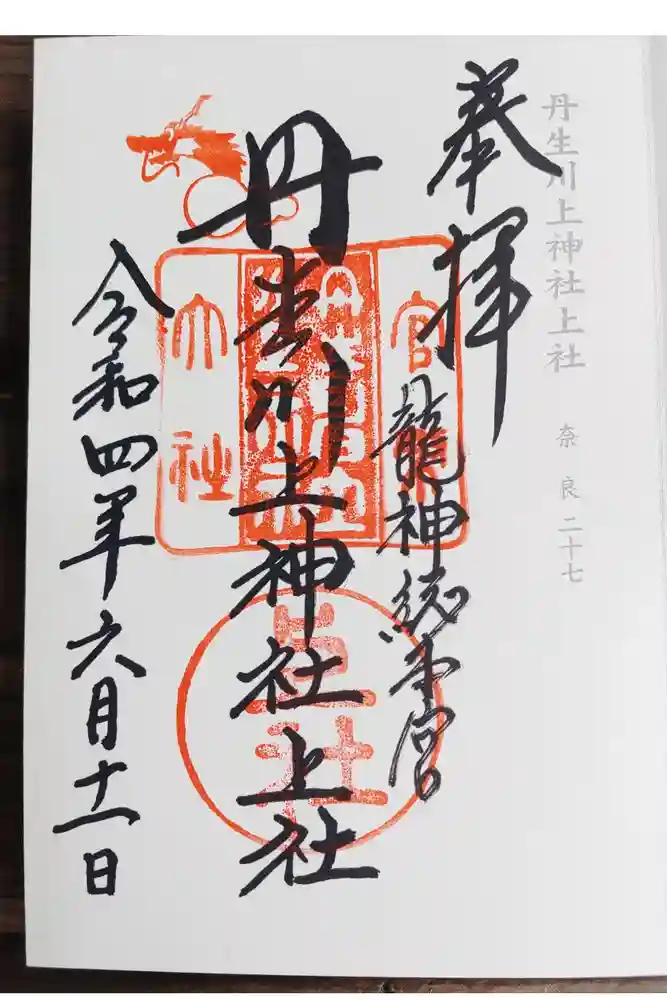 丹生川上神社上社 奈良 二十七
奉拝
龍神総本宮
丹生川上神社上社
官 大社
上社
令和四年六月十一日